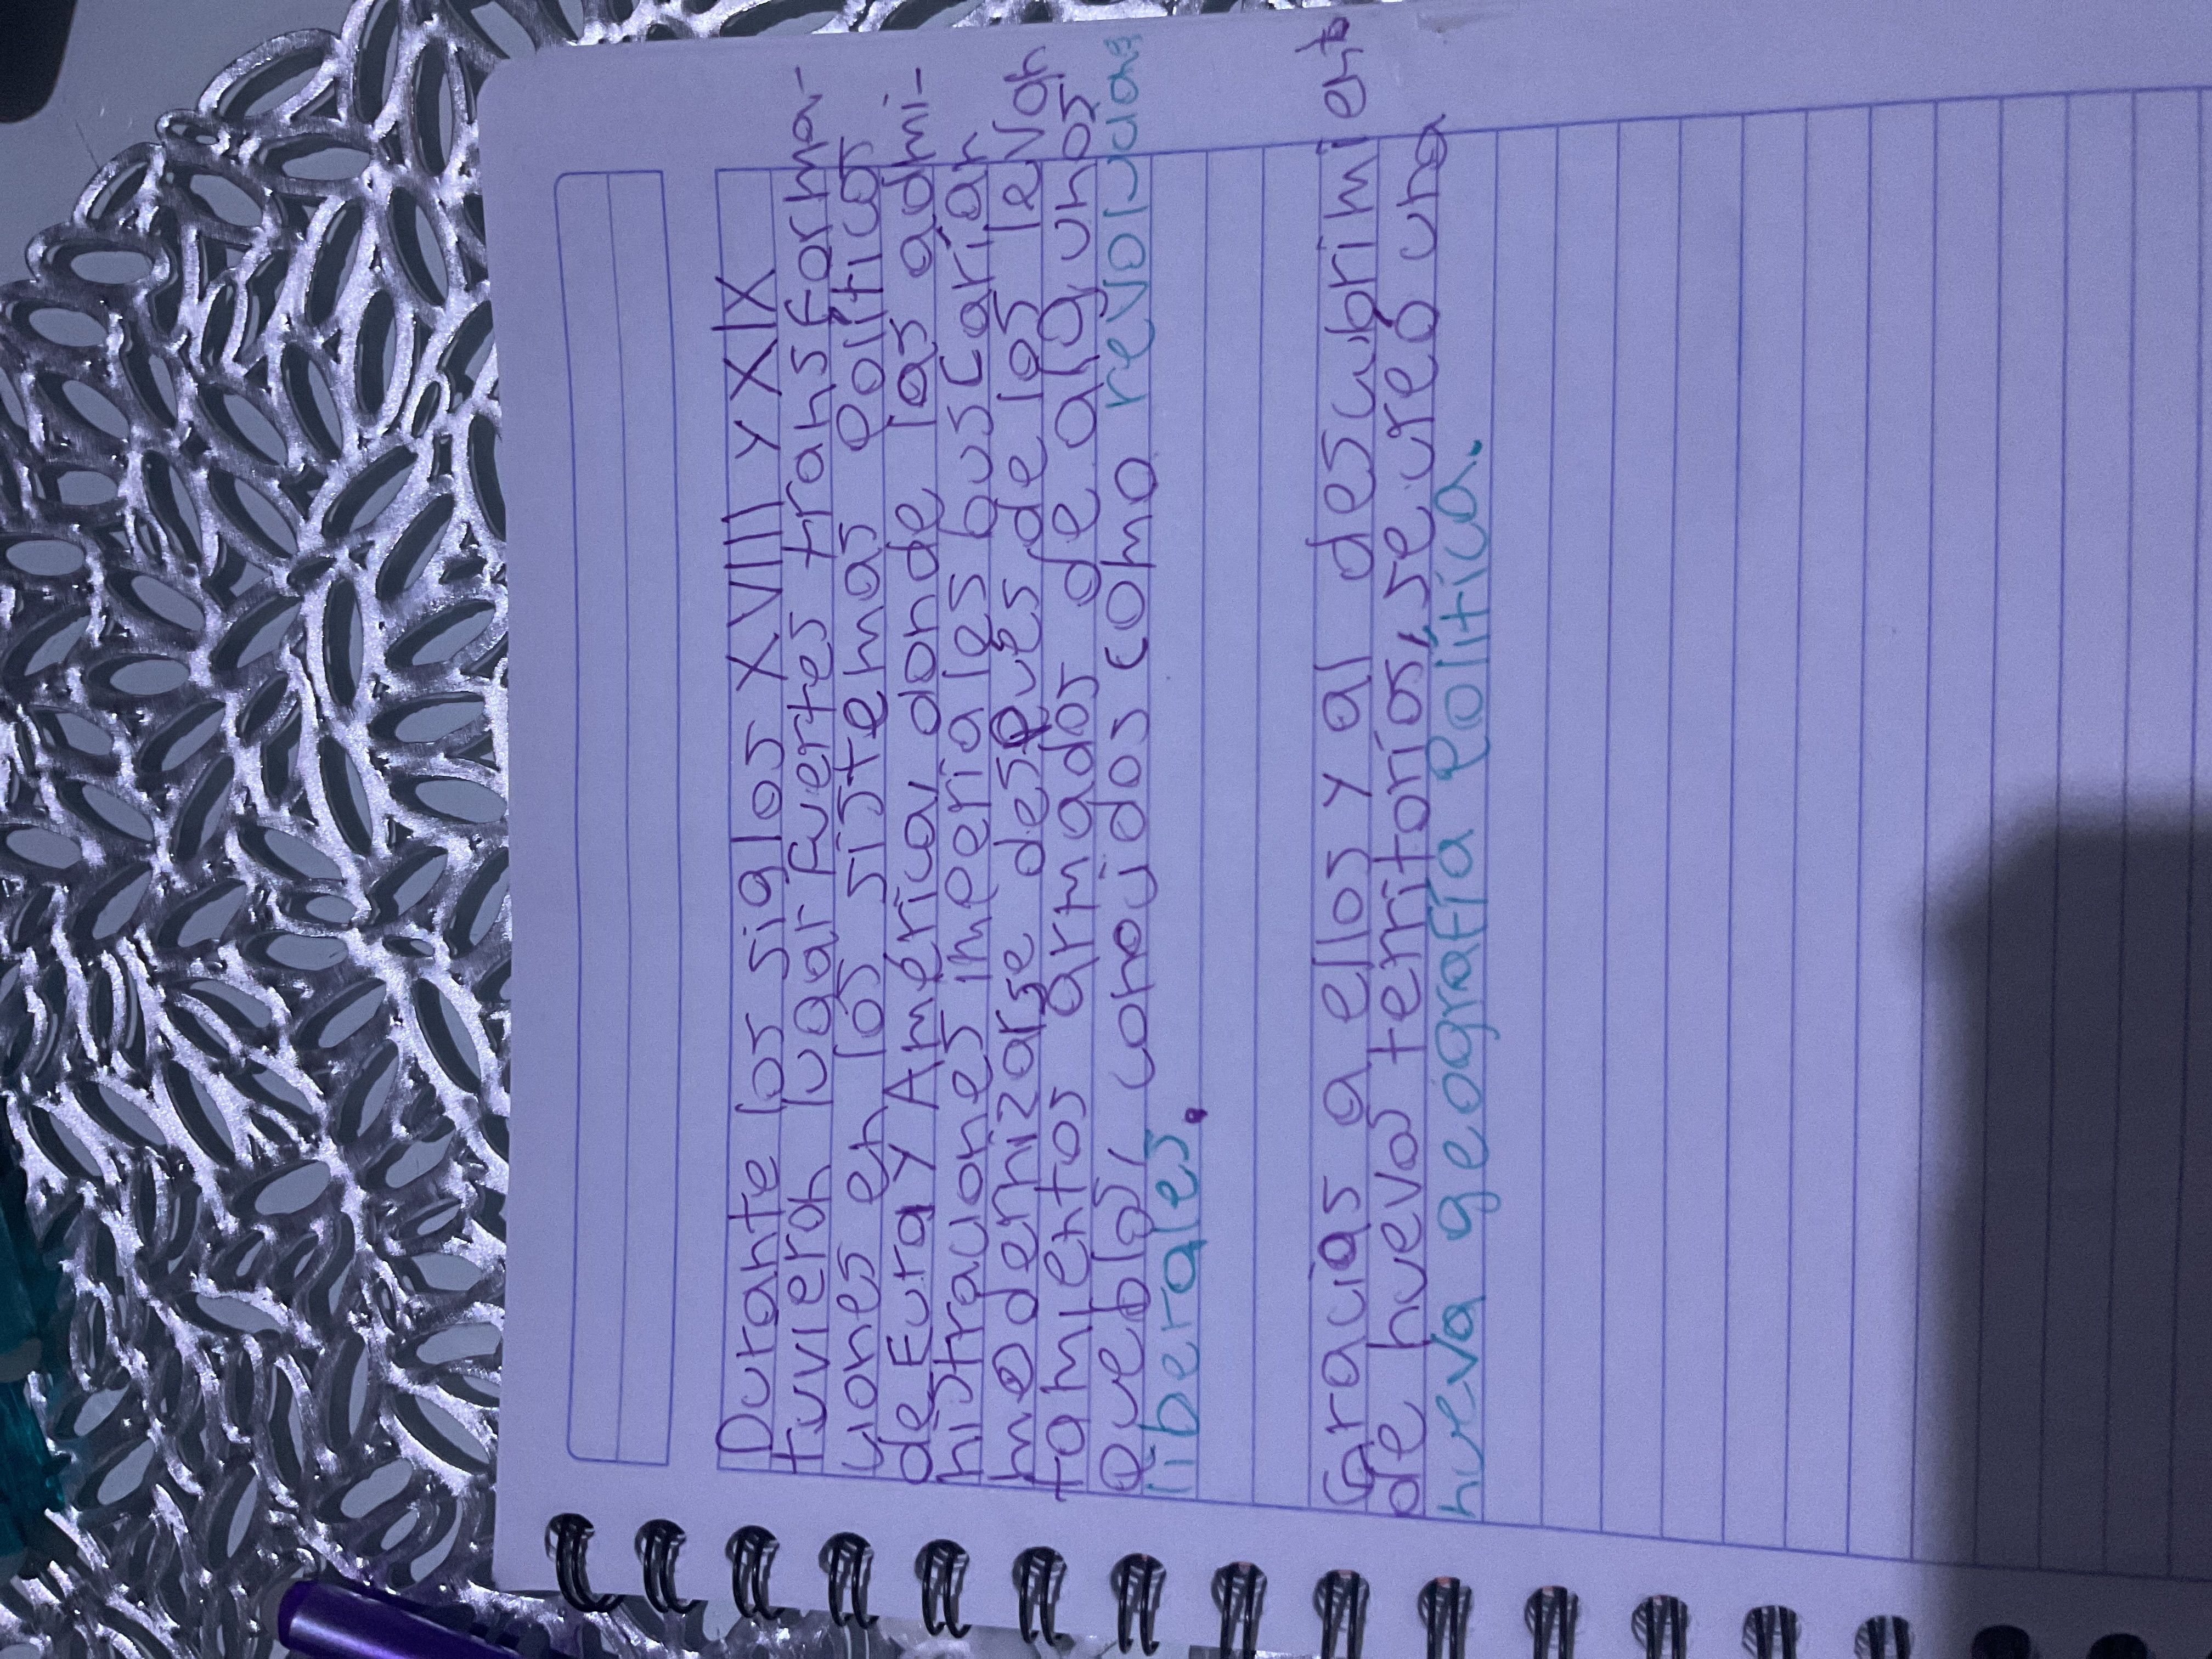 Durante los siglos XVIII y XIX
tuvieron lugar fuertes transforma-
ciones en los sistemas políticos
de Eura y América, donde las admi-
nistraciones imperiales buscarían
modernizarse después de los levan
tamientos armados de algunos
pueblos, conocidos como revoluciones
liberales.
Gracias a ellos y al descubrimiento
de nuevos territorios, se creó una
nueva geografía política.